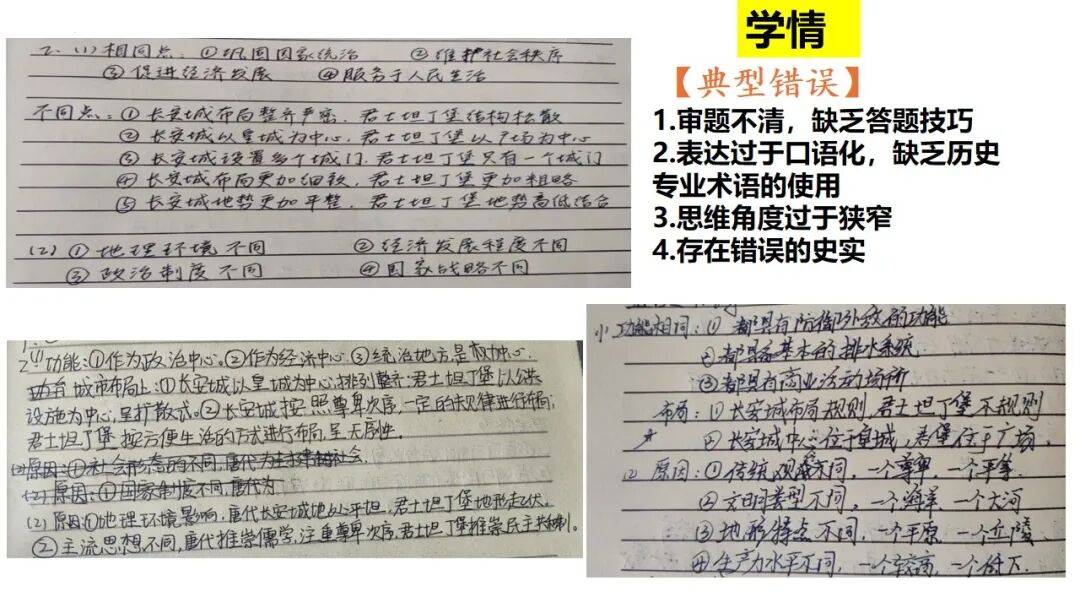 学情
【典型错误】
1.审题不清，缺乏答题技巧
2.表达过于口语化，缺乏历史
专业术语的使用
3.思维角度过于狭窄
4.存在错误的史实
2、(1) 相同点：①巩固国家统治 ②维护社会秩序
③促进经济发展 ④服务于人民生活
不同点：①长安城布局整齐严密，君士坦丁堡结构松散
②长安城以皇城为中心，君士坦丁堡以广场为中心
③长安城设置多个城门，君士坦丁堡只有一个城门
④长安城布局更加细致，君士坦丁堡更加粗略
⑤长安城地势更加平整，君士坦丁堡地势高低结合
(2) ①地理环境不同 ②经济发展程度不同
③政治制度不同 ④国家战略不同
2(1)功能：①作为政治中心。②作为经济中心。③统治地方,是权力中心.
城市布局上：①长安城以皇城为中心,排列整齐;君士坦丁堡以公共
设施为中心,呈扩散式。②长安城按照尊卑次序,一定的规律进行布局;
君士坦丁堡按方便生活的方式进行布局,呈无序性.
原因：①社会形态的不同,唐代为
(2)原因：①国家制度不同,唐代为
(2)原因①地理环境影响,唐代长安城地处平坦,君士坦丁堡地形起伏.
②主流思想不同,唐代推崇儒学,注重尊卑次序,君士坦丁堡推崇民主
(1)功能相同：①都具有防御外敌的功能
②都具备基本的排水系统
③都具有商业活动场所
布局：①长安城布局规则,君士坦丁堡不规则
②长安城中心位于皇城,君堡位于广场.
② 原因：①传统观念不同,一个尊卑 一个平等.
②文明类型不同,一个海洋 一个大河
③地形特点不同,一个平原,一个丘陵
④生产力水平不同,一个较高,一个低下.